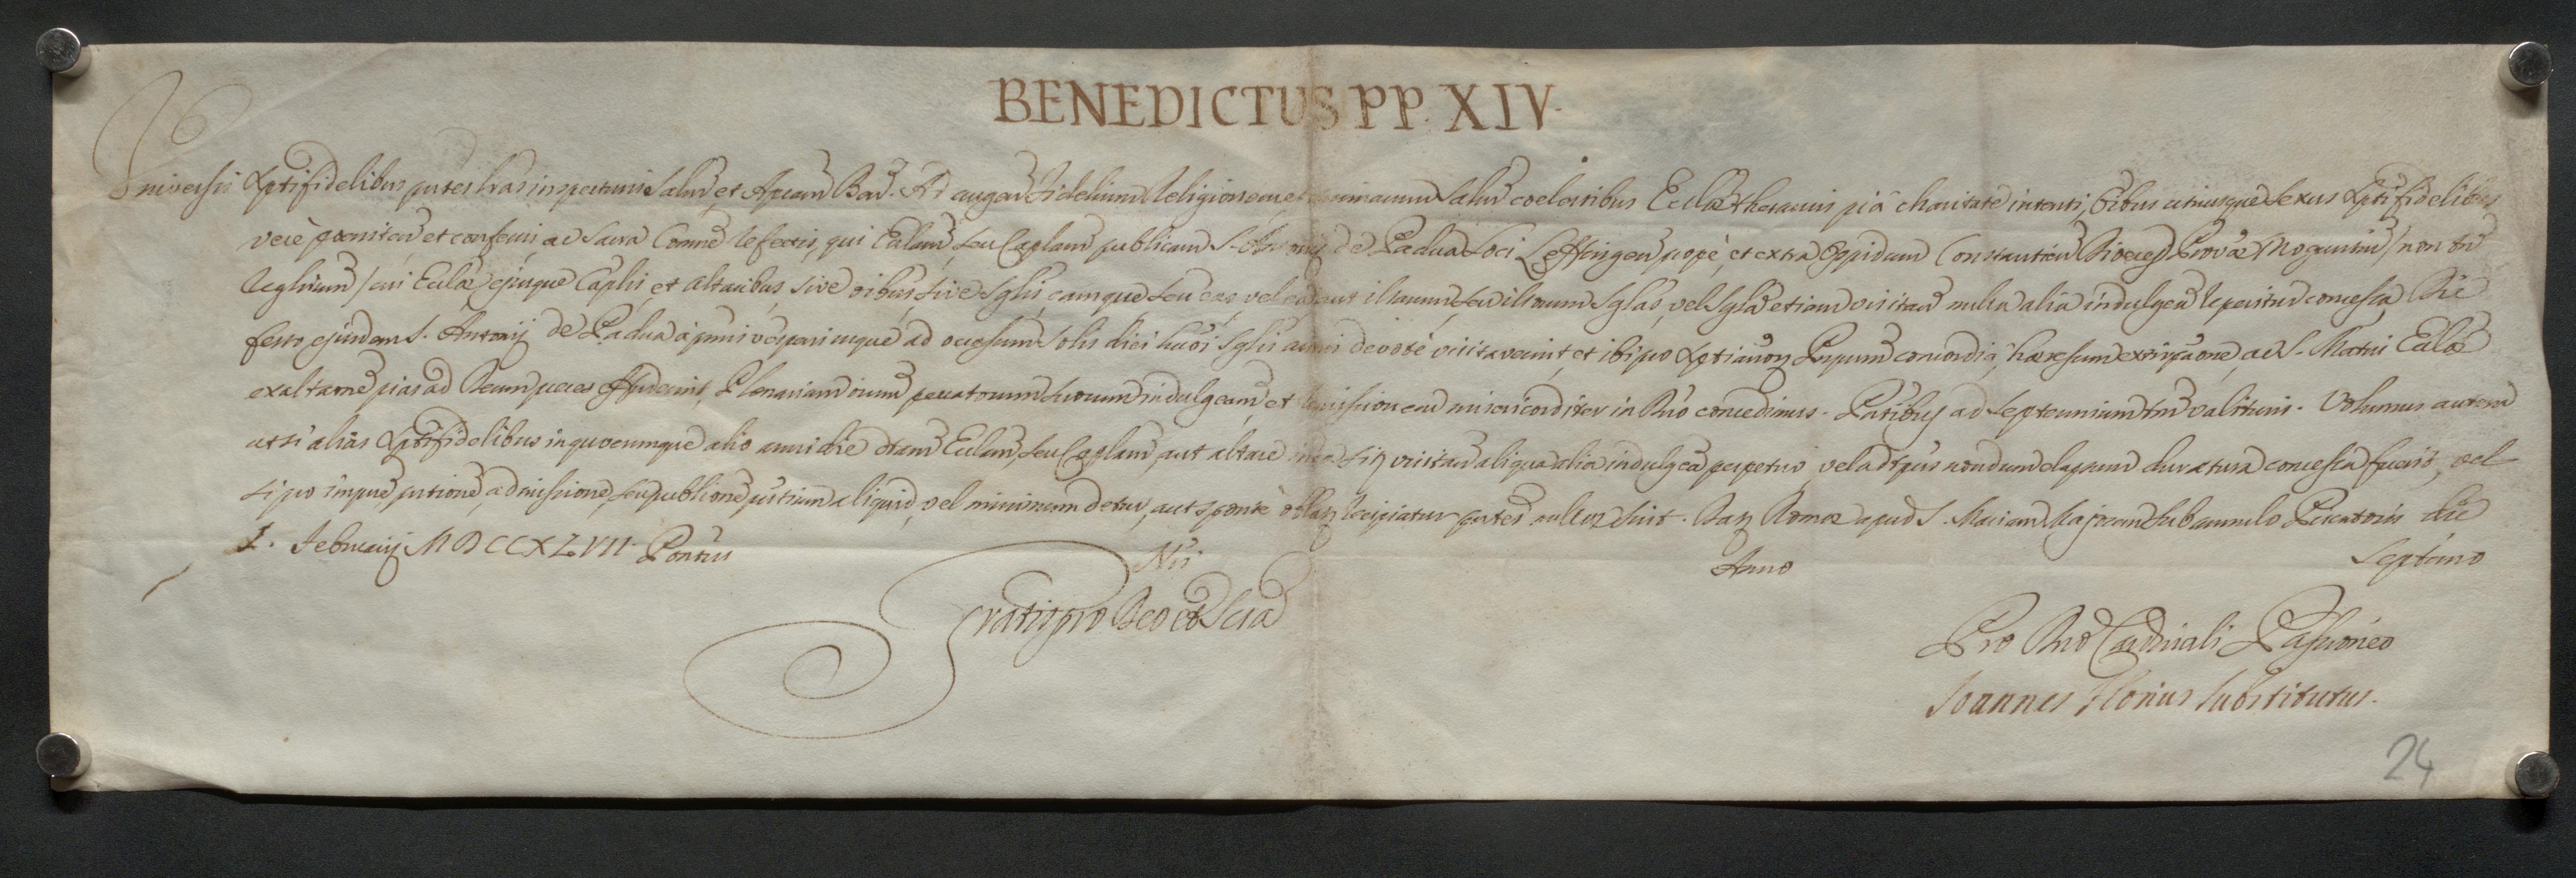 BENEDICTUS PP. XIV.
Universis Xptifidelibus pntes lras inspecturis Salut et Aplicam Ben. Ad augen fidelium Religionem, et animarum Salut coelestibus Ecclæ thesauris piâ charitate intenti, oibus utriusque Sexus Xptifidelibus
verè poeniten et confessis, ac Sacra Comne refectis, qui Eclam, seu Caplam publicam S. Antonij de Padua Loci Leffingen prope, et extra Oppidum Constantien Dioeces Provæ Moguntin / non tn
Reglarium / cui Eclæ ejusque Caplis, et Altaribus sive oibus, sive Sglis, eamque seu eas, vel ea aut illarum, seu illorum Sglas, vel Sgla etiam visitan nulla alia indulgea reperitur concessa, Die
festo ejusdem S. Antonij de Padua à primis vesperis usque ad occasum Solis diei hmoi Sglis annis devotè visitaverint, et ibi pro Xptianoz Prpum concordia, hæresum extirpaone, ac S. Matris Eclæ
exaltaone pias ad Deum preces effuderint, Plenariam oium peccatorum suorum indulgeam, et remissionem misericorditer in Dno concedimus. Pntibus ad Septennium tm valituris. Volumus autem
ut si aliàs Xptifidelibus in quocumque alio anni die dtam Eclam, seu Caplam, aut altare in ea sit visitan aliqua alia indulgea perpetuò, vel ad tpus nondum elapsum duratura concessa fuerit, vel
si pro impne, pntione, admissione, seu publione pntium aliquid, vel minimum detur, aut sponte oblatz recipiatur pntes nullæ sint. Datz Romæ apud S. Mariam Majorem sub annulo Piscatoris die
I. Februarij MDCCXLVII. Pontus Nri Anno Septimo
Gratis pro Deo et Scra
Pro Dno Cardinali Passioneo
Joannes Florius Substitutus.
24